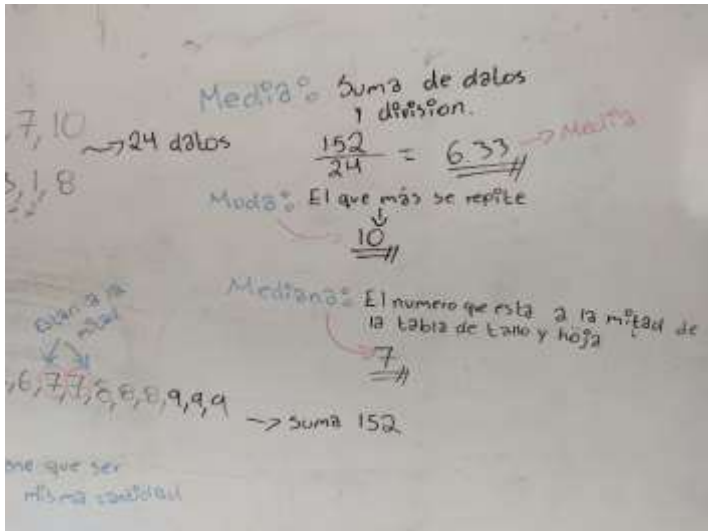 Media: Suma de datos
y division.
, 7, 10
→ 24 datos
152
24
= 6.33 → Media
3, 1, 8
Moda: El que más se repite
10
Mediana: El numero que esta a la mitad de
la tabla de tallo y hoja
7
Estan a la
mitad
,6,7,7,8,8,8,9,9,9 → suma 152
que ser
misma cantidad